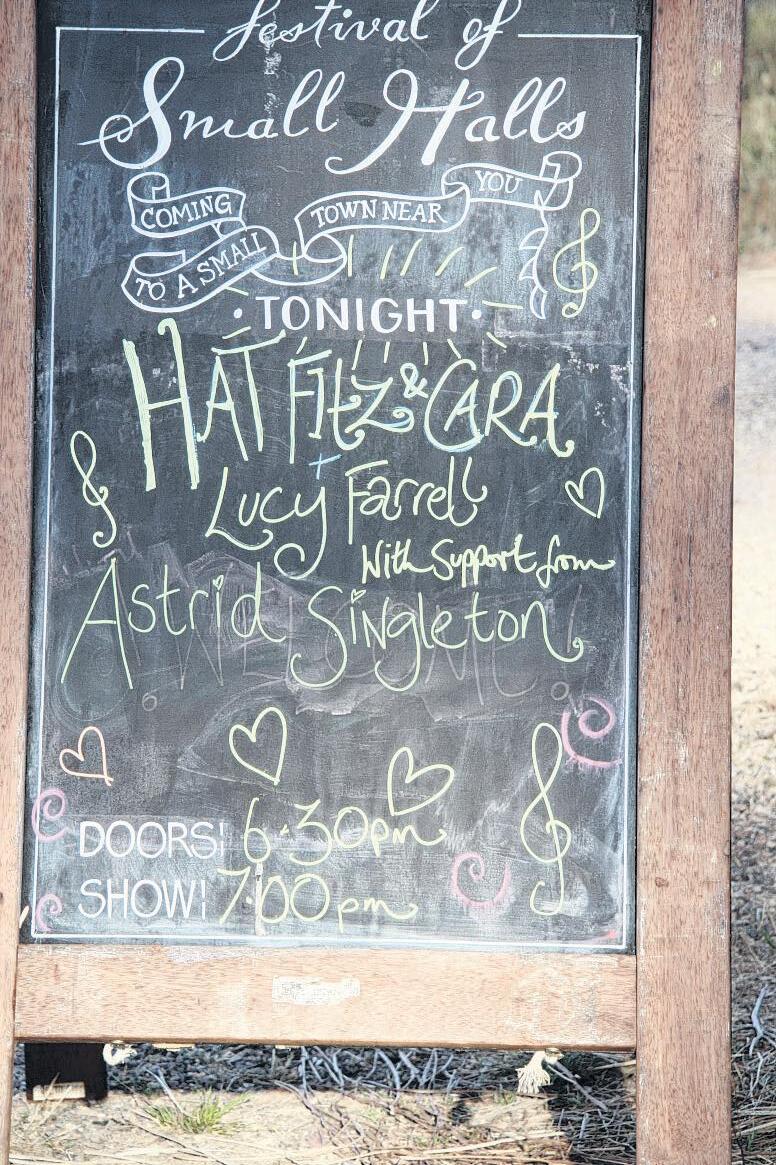 festival of
Small Halls
COMING
TO A SMALL
TOWN NEAR
YOU
·TONIGHT·
HAT FItZ & CARA
+
Lucy Farrell
With Support from
Astrid Singleton
WELCOME!
DOORS! 6·30pm
SHOW! 7·00pm